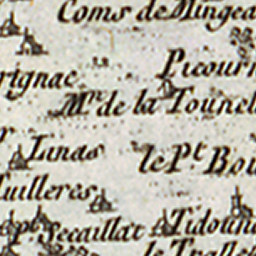 Coms de Mingea
rignac
Picourn
Mrs de la Tounel
Linas
le Pt. Bou
uilleres
Pt Secaillat
Tidoune
le Trallet